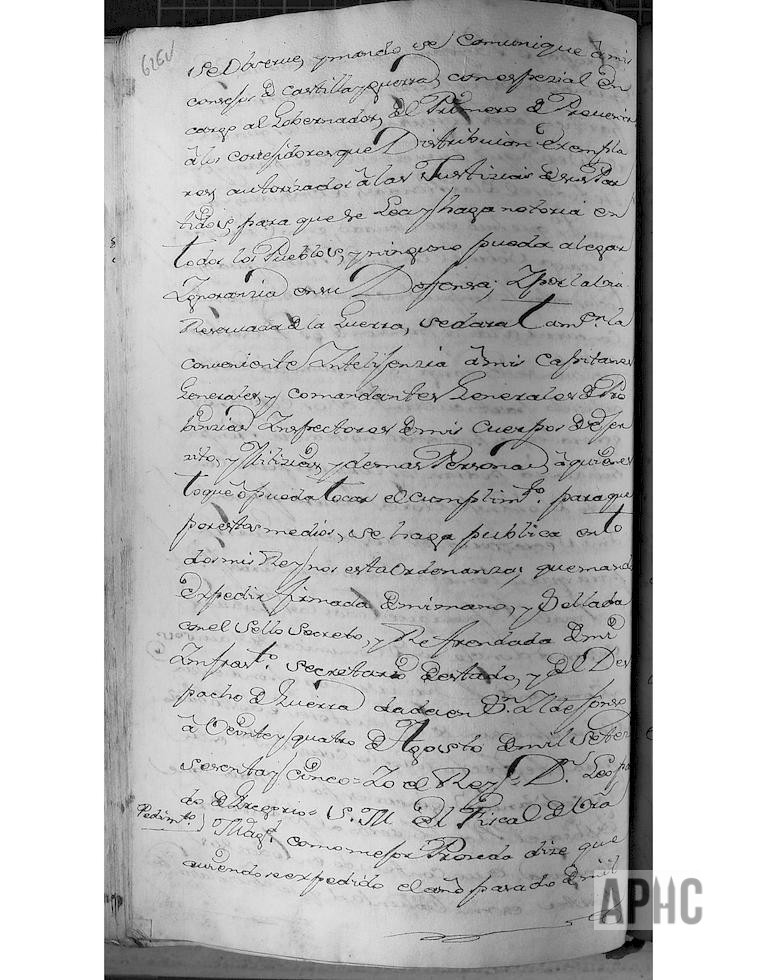 626v
se Observe, y mando se Comunique à mis
consejos de Castilla y guerra, con espezial en
cargo al Gobernador, del Primero de Prevenir
à los correjidores que Distribuian exempla
res autorizados à las Justizias de sus Par
tidos, para que se Lea y haga notoria en
todos los Pueblos, y ninguno pueda alegar
Ygnoranzia en su Defensa; Y por la via
Reservada de la Guerra, se dara tamn. la
conveniente Yntelijenzia à mis Capitanes
Generales, y comandantes Generales de Pro
binzias Ynspectores de mis Cuerpos de Exer
zito, y Milizias, y demas Personas, à quienes
toque ò pueda tocar el cumplimto. para que
por estos medios, se haga publica en to
dos mis Reynos esta Ordenanza, que mando
Expedir firmada de mi mano, y Sellada
con el Sello Secreto, y Refrendada de mi
Ynfrasto. Secretario de estado, y del Des
pacho de Guerra dada en Sn. Yldefonso
à Veinte y quatro de Agosto de mil Sete
sesenta y cinco = Yo el Rey = Dn. Leopo
do de Gregorio = S. M. El Fiscal de la
Pedimto. ) Magd. como mejor Proseda dize que
aviendose expedido el año pasado de mil
APHC